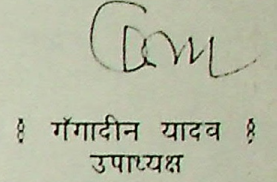 § गॅगादीन यादव §
उपाध्यक्ष